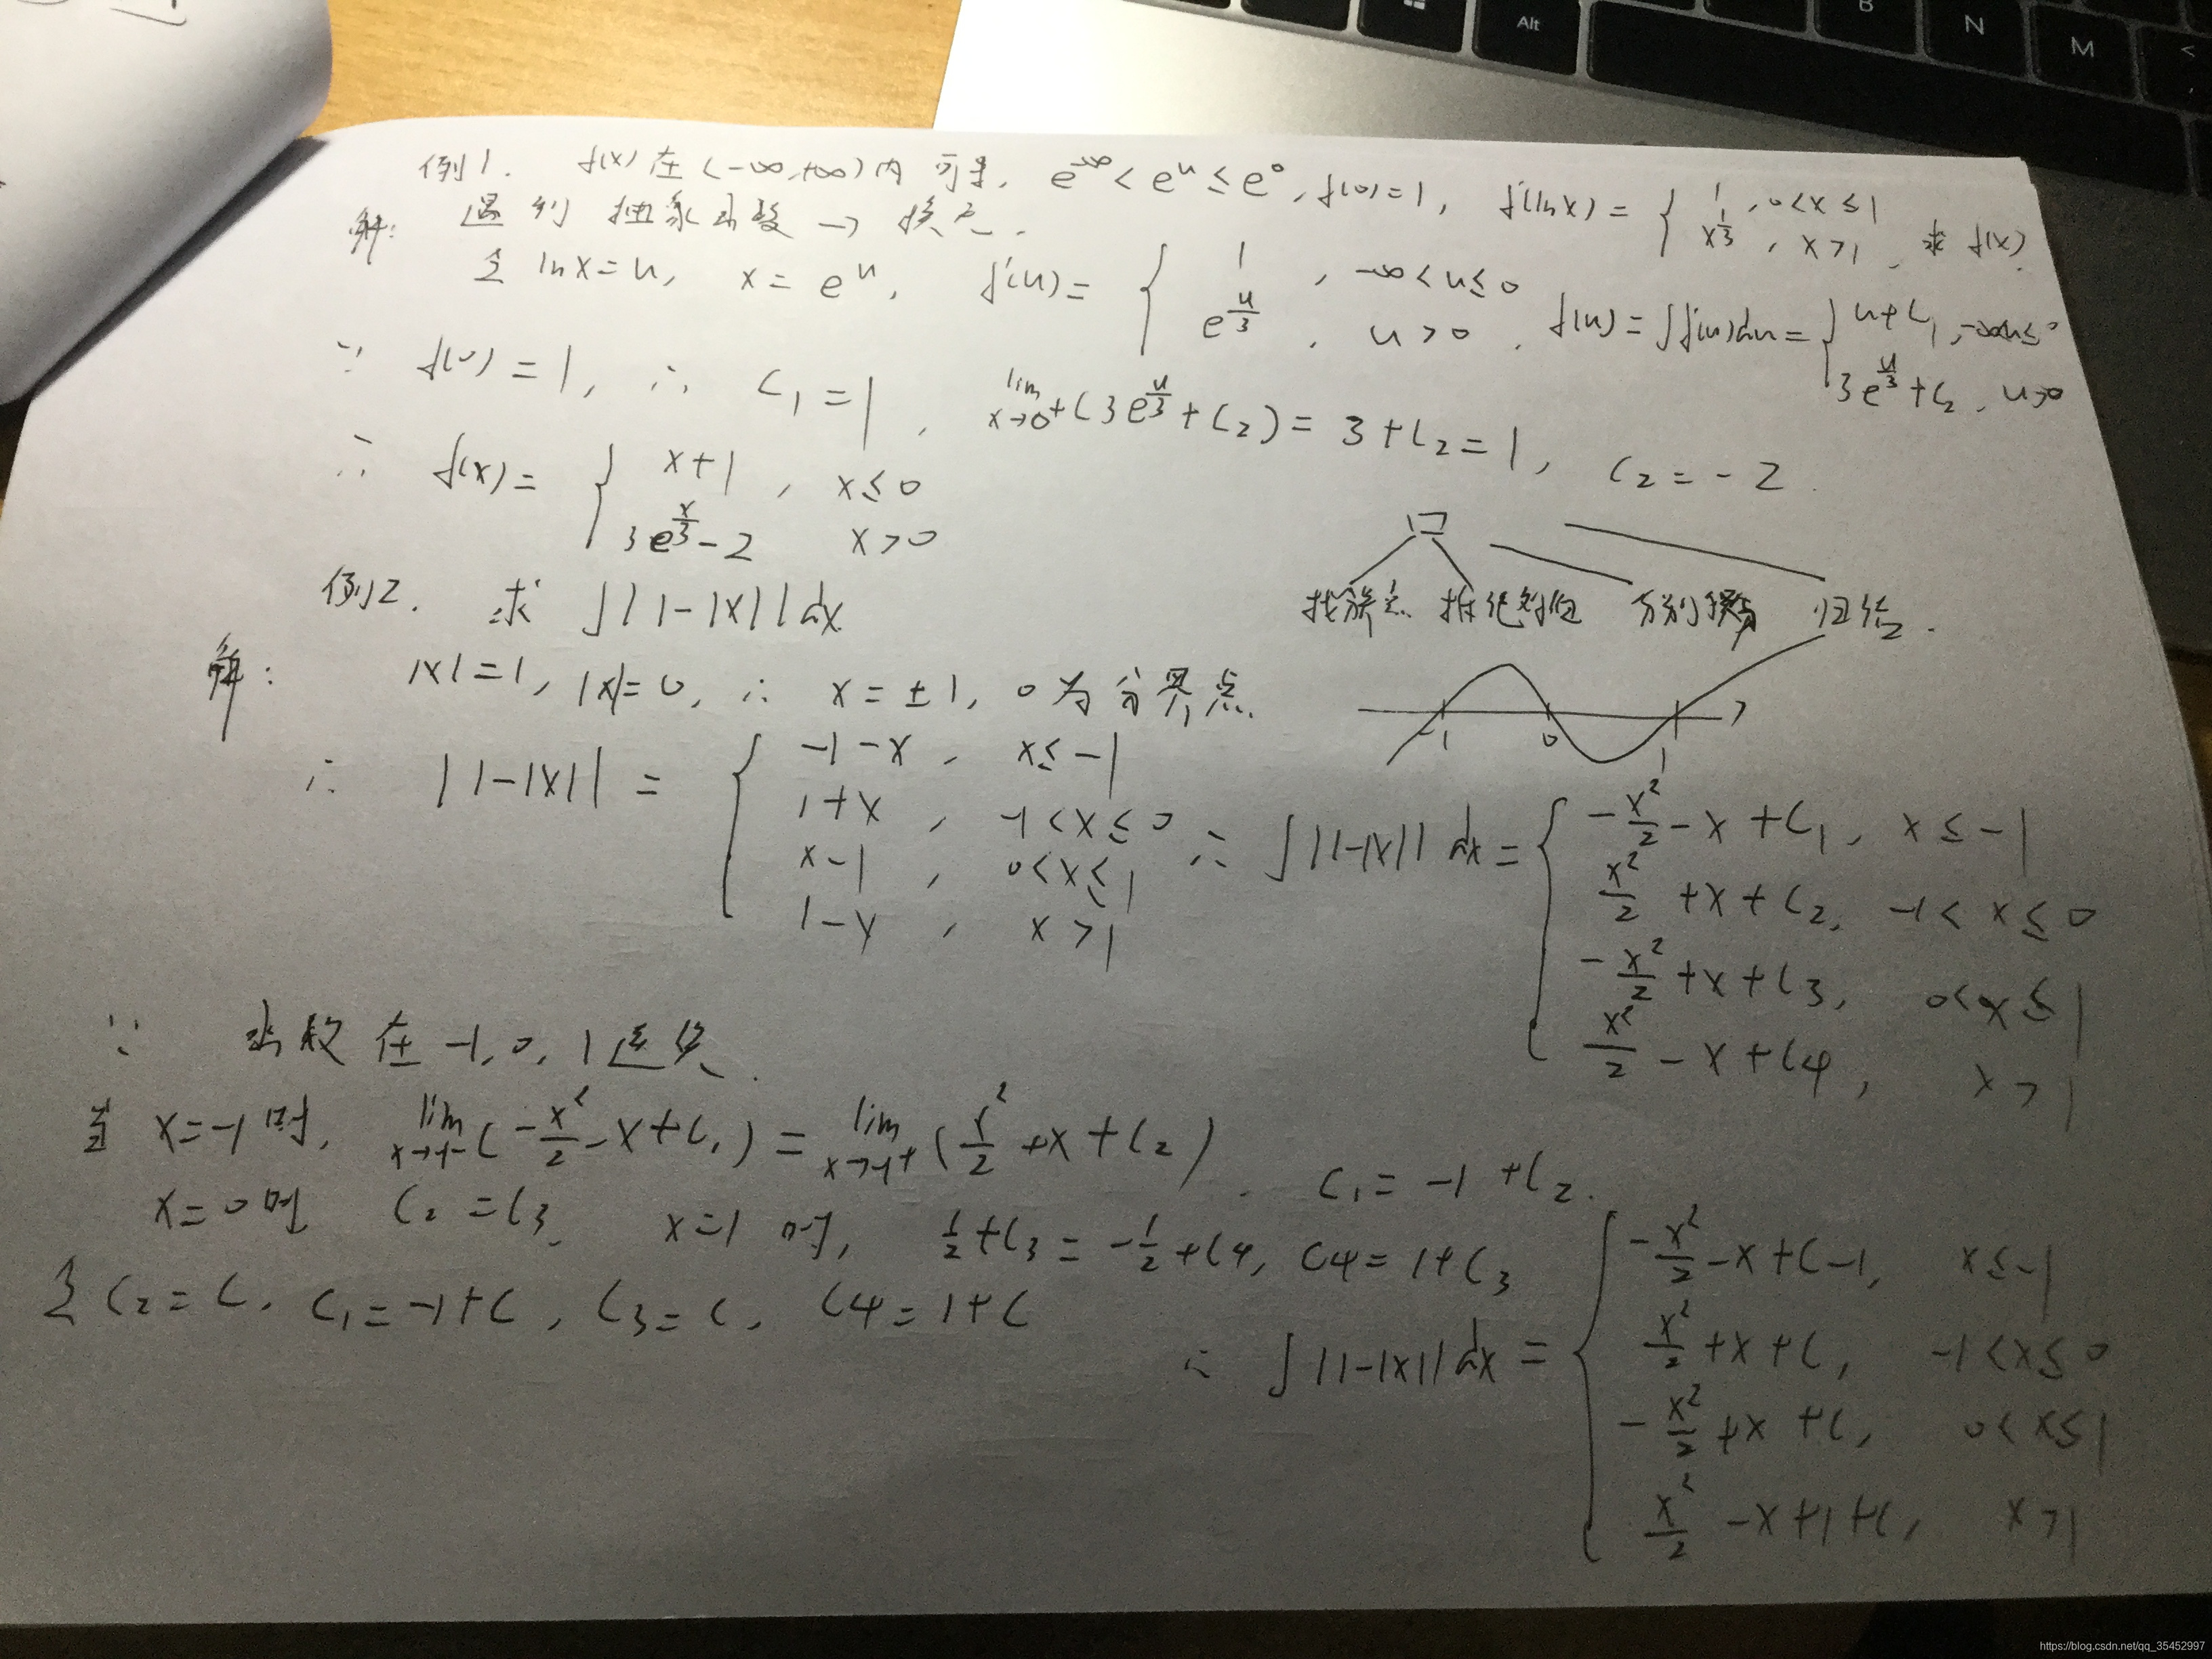 Alt
B
N
M
<
例1. f(x)在(-∞,+∞)内可导, e^{-∞}<e^u≤e^0, f(0)=1, f'(lnx)={ 1, 0<x≤1
x^{1/3}, x>1, 求f(x).
解: 遇到抽象函数→换元.
令lnx=u, x=e^u, f'(u)={ 1, -∞<u≤0
e^{u/3}, u>0, f(u)=∫f'(u)du={ u+C₁, -∞<u≤0
3e^{u/3}+C₂, u>0
∵ f(0)=1, ∴ C₁=1, lim_{x→0+}(3e^{u/3}+C₂)=3+C₂=1, C₂=-2.
∴ f(x)={ x+1, x≤0
3e^{x/3}-2 x>0
例2. 求∫|1-|x||dx
拆绝对值 分别积分 归结.
解: |x|=1, |x|=0, ∴ x=±1, 0为分界点.
-1 0 1
∴ |1-|x||={ -1-x, x≤-1
1+x, -1<x≤0
x-1, 0<x≤1
1-x, x>1
∴ ∫|1-|x||dx={ -x²/2-x+C₁, x≤-1
x²/2+x+C₂, -1<x≤0
-x²/2+x+C₃, 0<x≤1
x²/2-x+C4, x>1
∵ 函数在-1,0,1连续.
当x=-1时, lim_{x→-1-}(-x²/2-x+C₁)=lim_{x→-1+}(x²/2+x+C₂). C₁=-1+C₂.
x=0时 C₂=C₃, x=1时, 1/2+C₃=-1/2+C4, C4=1+C₃
令C₂=C, C₁=-1+C, C₃=C, C4=1+C
∴ ∫|1-|x||dx={ -x²/2-x+C-1, x≤-1
x²/2+x+C, -1<x≤0
-x²/2+x+C, 0<x≤1
x²/2-x+1+C, x>1
https://blog.csdn.net/qq_35452997